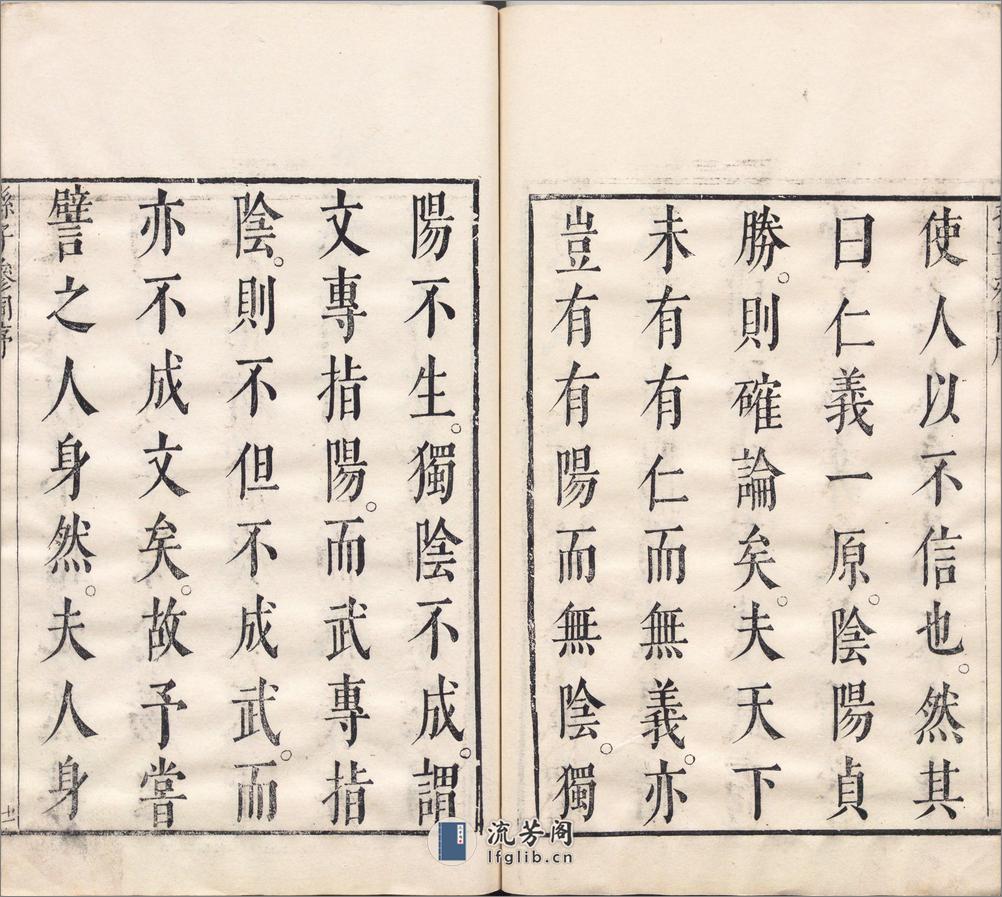 使人以不信也。然其
曰仁義一原。陰陽貞
勝。則確論矣。夫天下
未有有仁而無義。亦
豈有有陽而無陰。獨
陽不生。獨陰不成。謂
文專指陽。而武專指
陰。則不但不成武。而
亦不成文矣。故予嘗
譬之人身然。夫人身
孫子參同序
十一
流芳阁
lfglib.cn